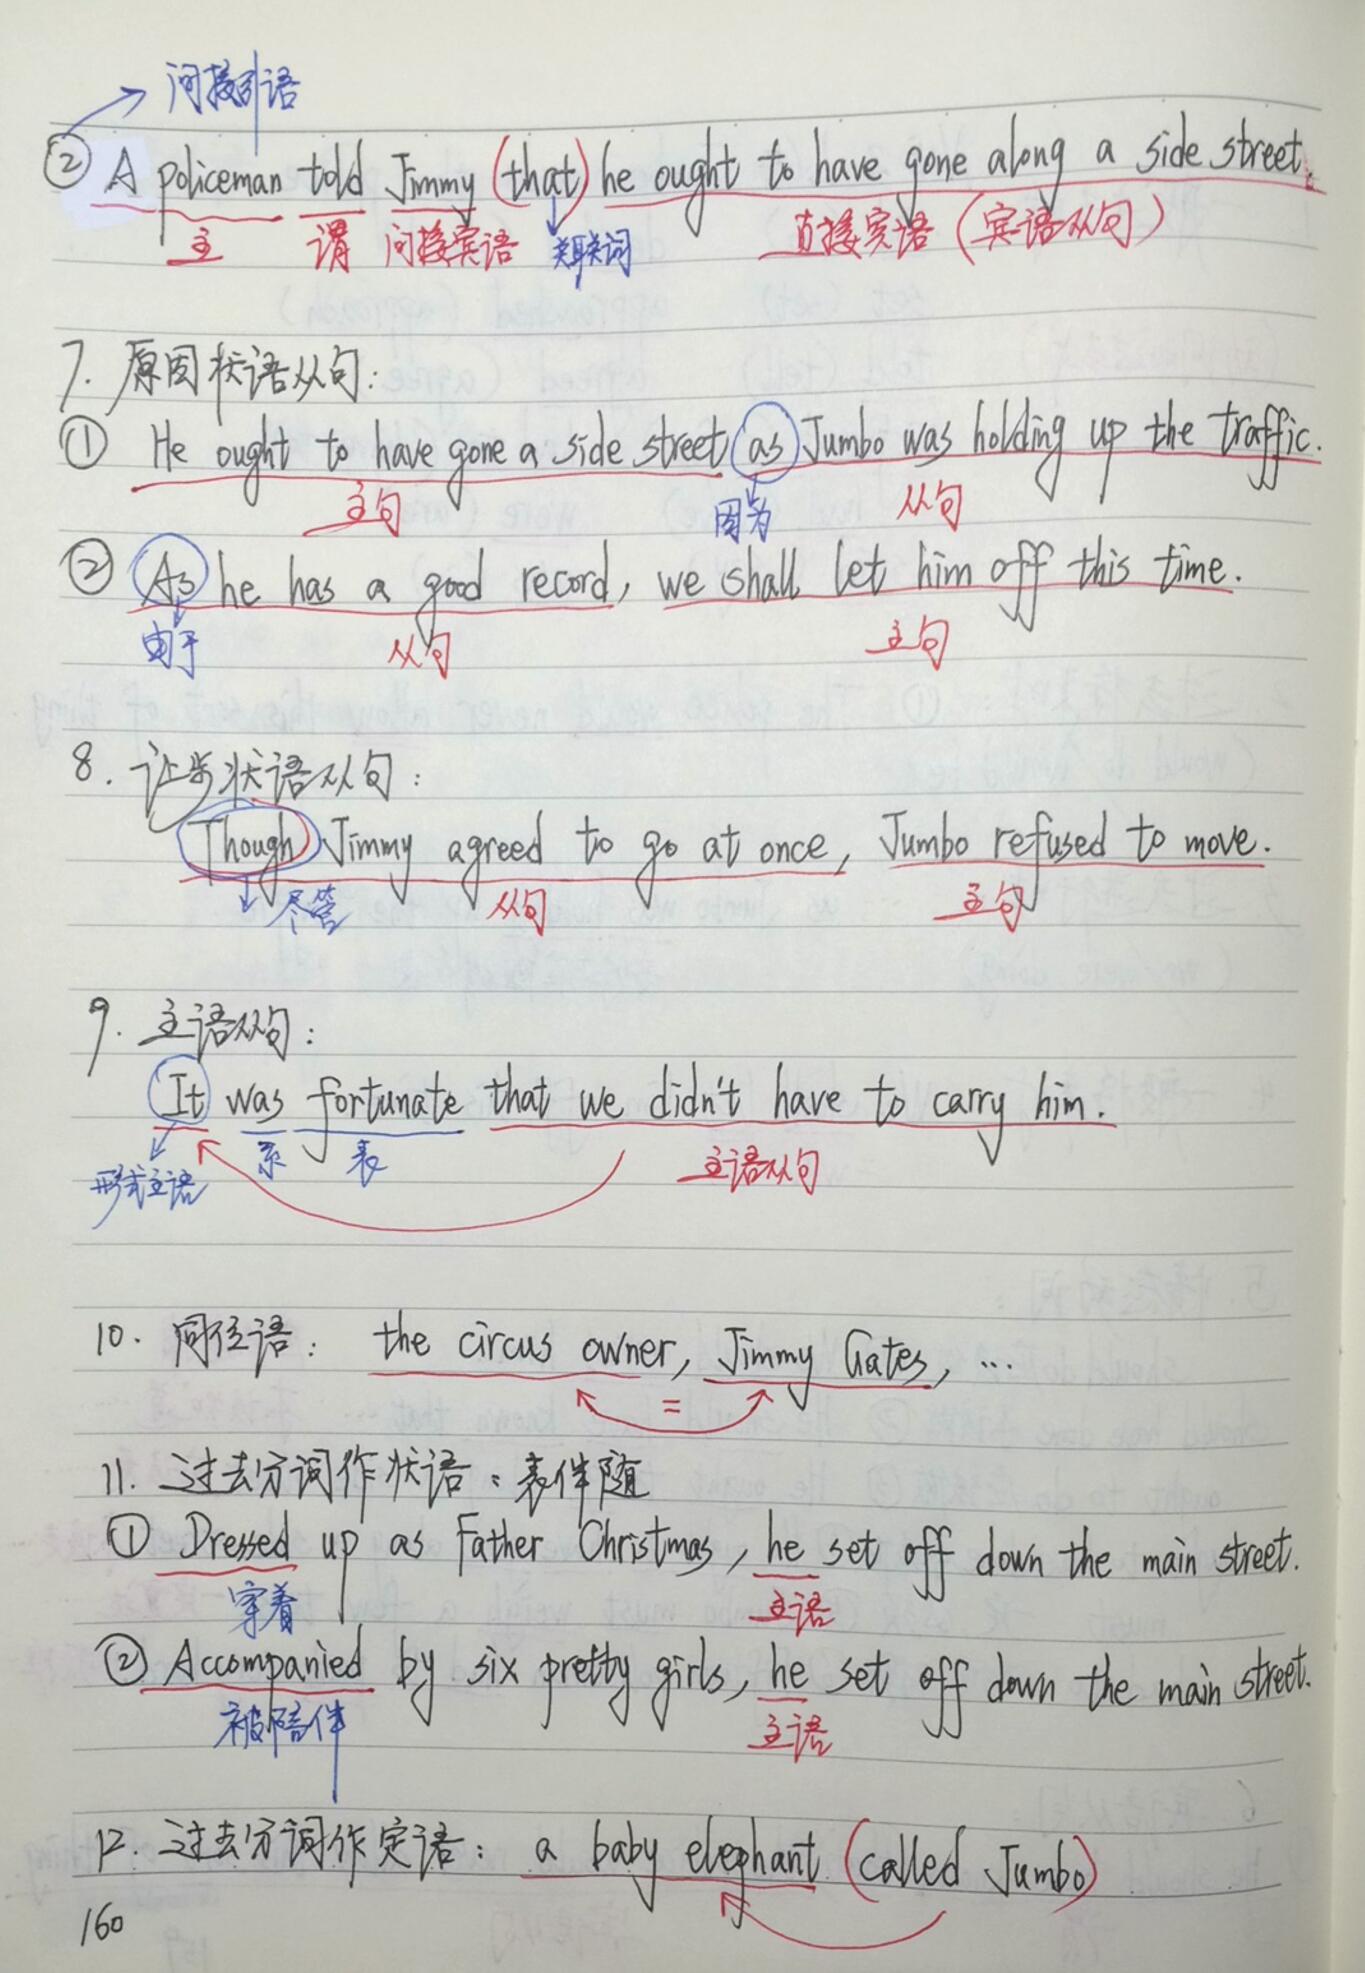 间接引语
② A policeman told Jimmy (that) he ought to have gone along a side street.
主 谓 间接宾语 关联词 直接宾语（宾语从句）
7. 原因状语从句：
① He ought to have gone a side street as Jumbo was holding up the traffic.
主句 因为 从句
② As he has a good record, we shall let him off this time.
由于 从句 主句
8. 让步状语从句：
Though Jimmy agreed to go at once, Jumbo refused to move.
尽管 从句 主句
9. 主语从句：
It was fortunate that we didn't have to carry him.
形式主语 系 表 主语从句
10. 同位语： the circus owner, Jimmy Gates, ...
=
11. 过去分词作状语：表伴随
① Dressed up as Father Christmas, he set off down the main street.
穿着 主语
② Accompanied by six pretty girls, he set off down the main street.
被陪伴 主语
12. 过去分词作定语： a baby elephant (called Jumbo)
160